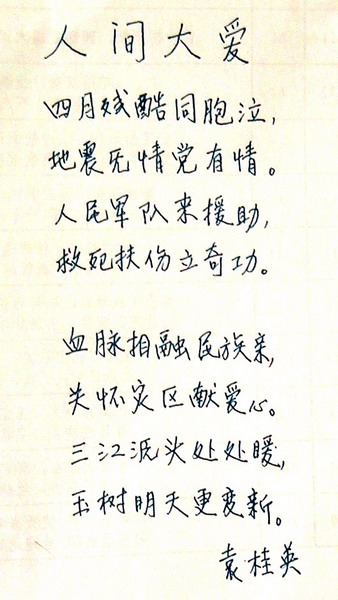 人间大爱
四月残酷同胞泣,
地震无情党有情。
人民军队来援助,
救死扶伤立奇功。
血脉相融民族亲,
关怀灾区献爱心。
三江沅头处处暖,
玉树明天更变新。
袁桂英